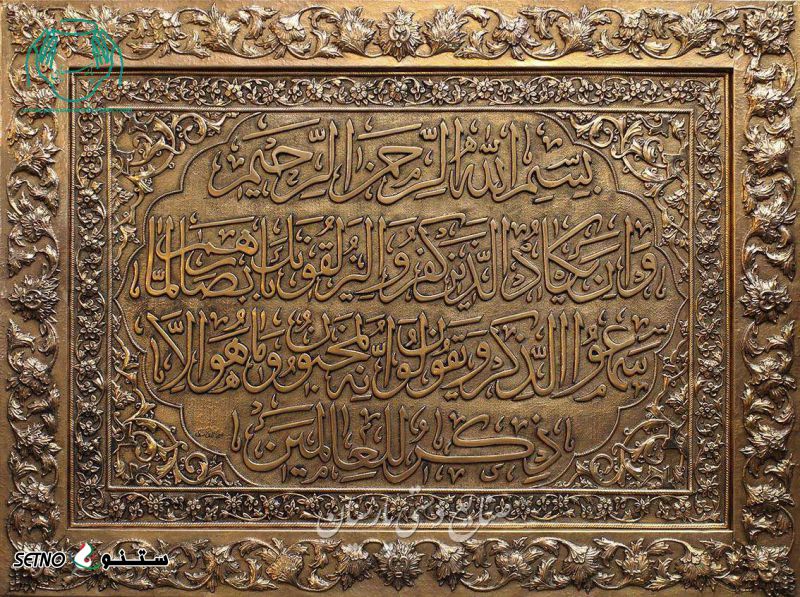 بِسْمِ اللهِ الرَّحْمنِ الرَّحيمِ
وَاِنْ يَكادُ الَّذينَ كَفَرُوا لَيُزْلِقُونَكَ بِاَبْصارِهِمْ لَمَّا
سَمِعُوا الذِّكْرَ وَيَقُولُونَ اِنَّهُ لَمَجْنُونٌ وَما هُوَ اِلاَّ
ذِكْرٌ لِلْعالَمينَ
صنایع دستی پارسیان
SETNO ستنو